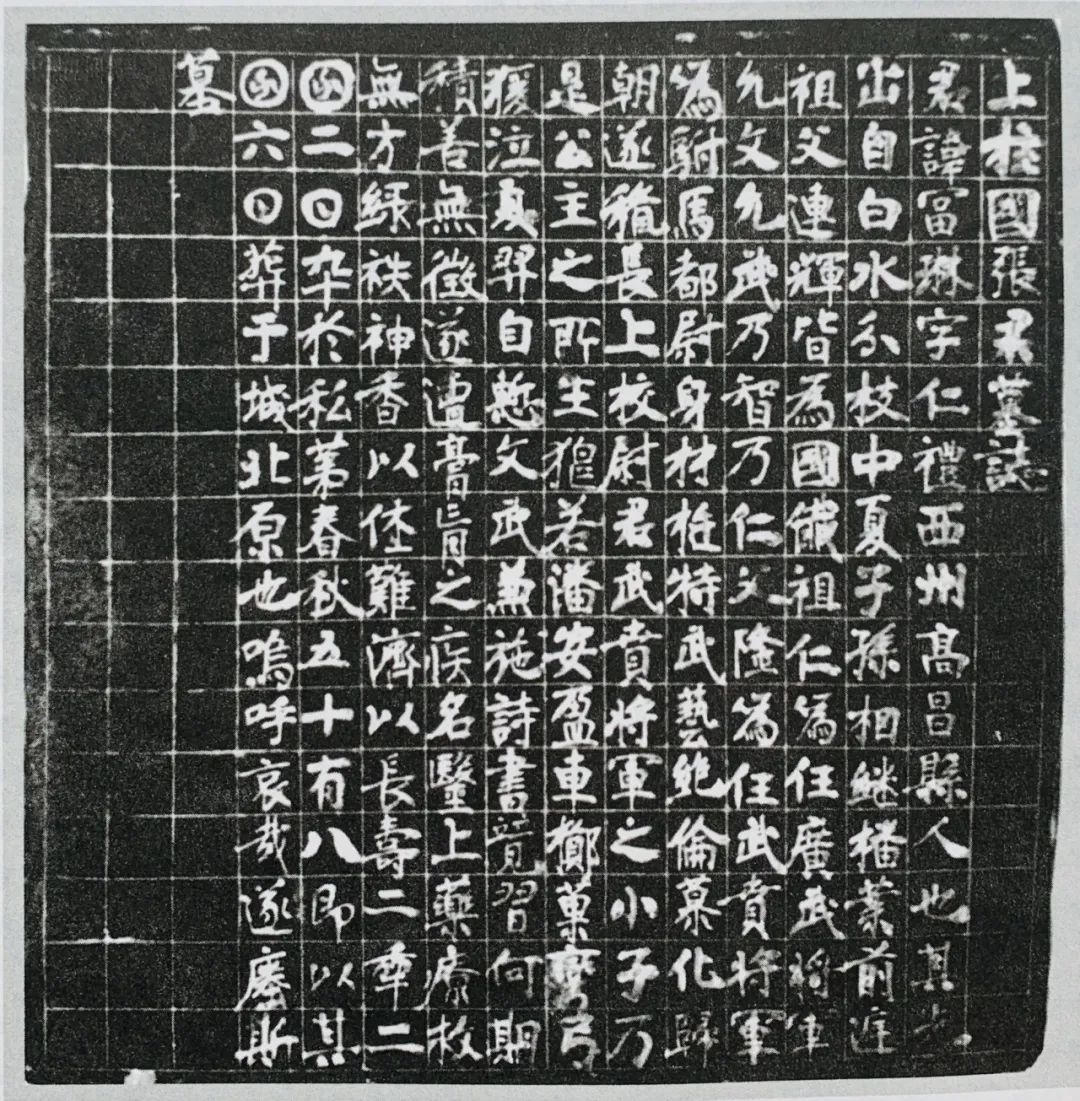 上柱國張君墓誌
君諱富琳字仁禮西州高昌縣人也其先
出自白水分枝中夏子孫相継播業前庭
祖父連輝皆為國儀祖仁為任廣武將軍
允文允武乃智乃仁父隆為任武賁將軍
為駙馬都尉身材特武藝絶倫慕化歸
朝遂積長上校尉君武賁將軍之小子乃
是公主之所生貌若潘安盈車擲菓彎弓
猨泣夐羿自慙文武兼施詩書竟習何期
積善無徵遂遭膏肓之疾名醫上藥療救
無方緑袟神香以体難濟以長壽二秊二
𠥱二𡆠卒於私第春秋五十有八即以其
𠥱六𡆠葬于城北原也嗚呼哀哉遂斯
墓